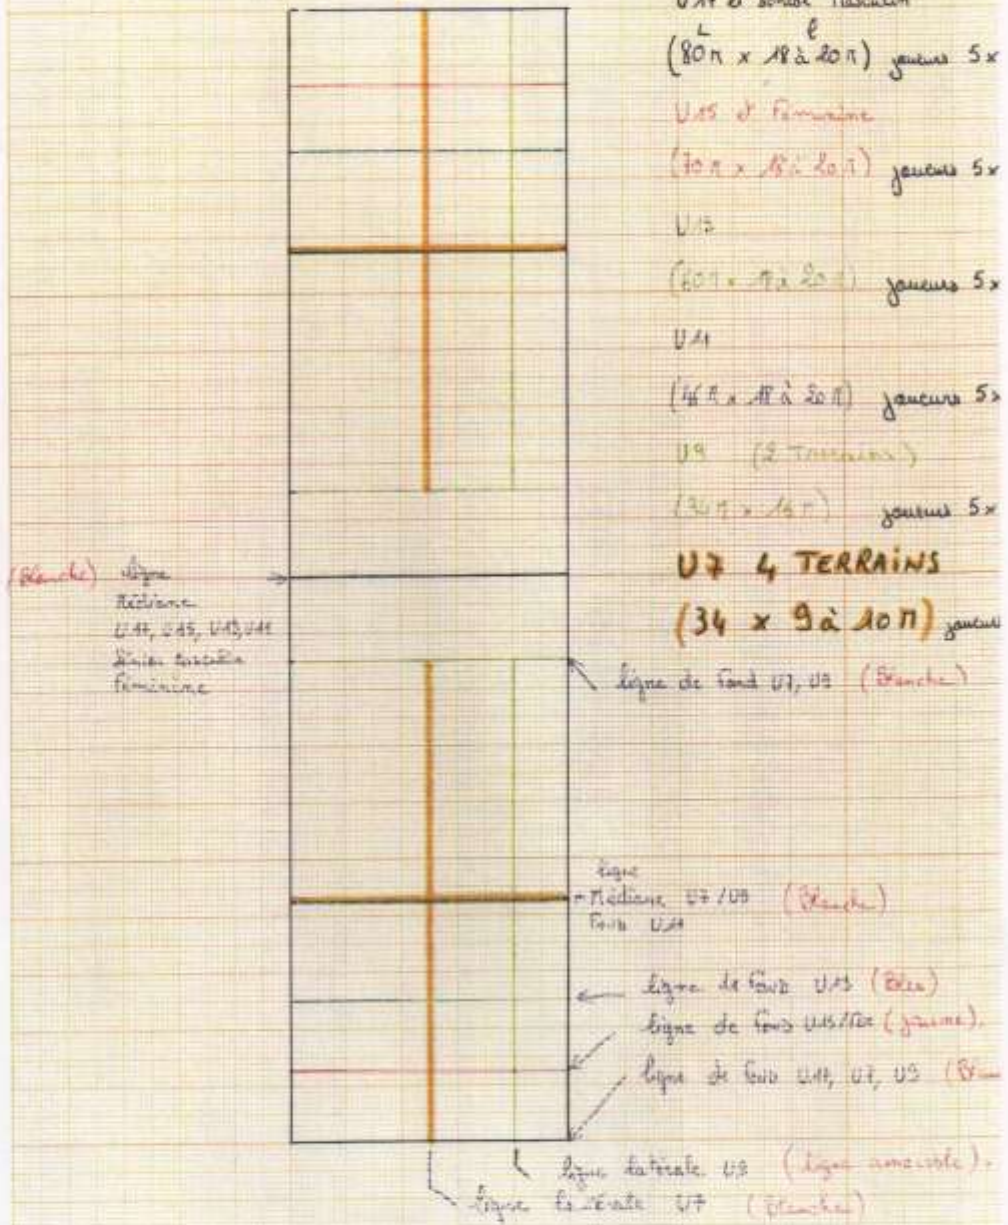 (80m x 18 à 20m) joueurs 5x
L
l
U15 et Féminine
(70m x 18 à 20m) joueurs 5x
U13
(60m x 18 à 20m) joueurs 5x
U11
(46m x 18 à 20m) joueurs 5x
U9 (2 Terrains)
(34m x 16m) joueurs 5x
U7 4 TERRAINS
(34 x 9 à 10m) joueurs
(Blanche) ligne
Médiane
U17, U15, U13, U11
Féminine
ligne de Fond U7, U9 (Blanche)
ligne
Médiane U7/U9 (Blanche)
Fond U11
ligne de Fond U13 (Bleu)
ligne de Fond U15/Fém (jaune).
ligne de Fond U17, U7, U9
ligne latérale U9 (ligne amovible).
ligne latérale U7 (Blanche)